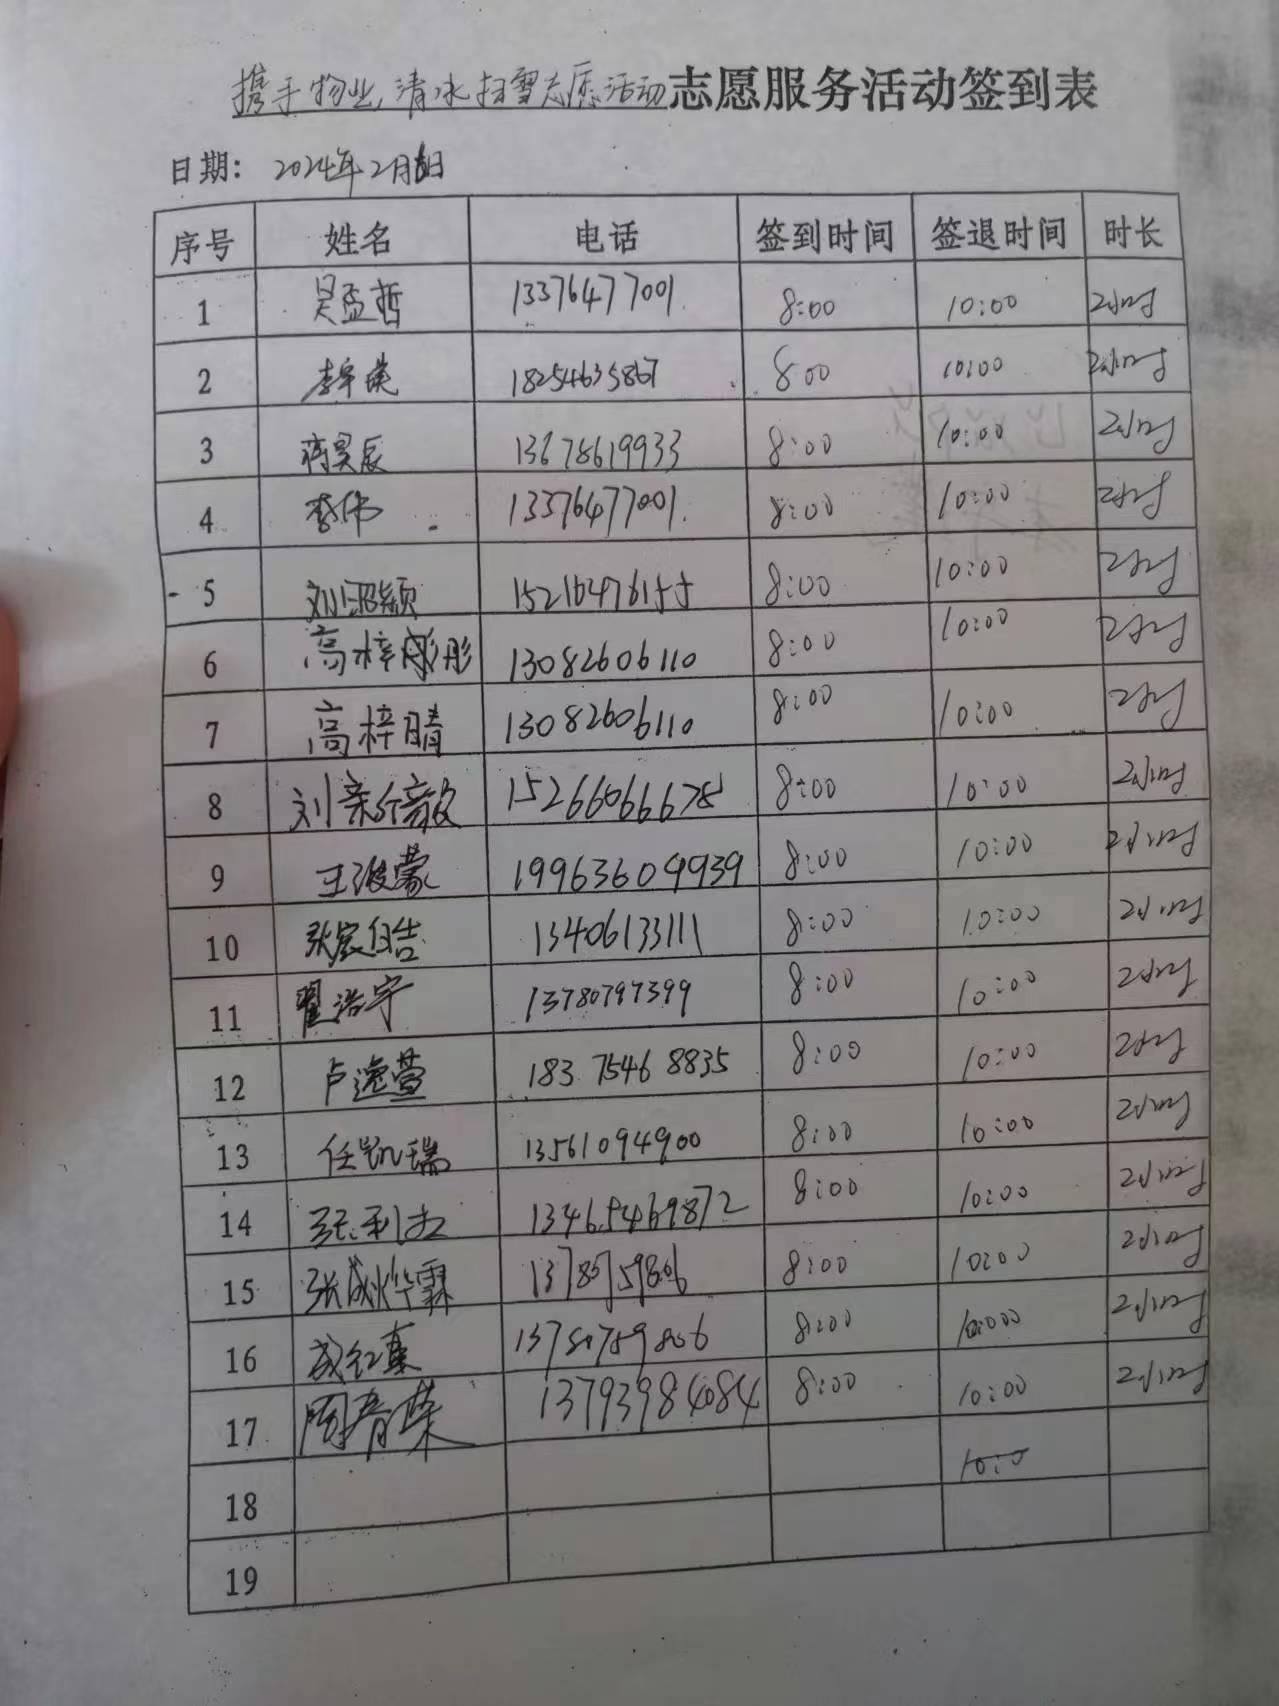 携手物业,清冰扫雪志愿活动志愿服务活动签到表
日期: 2024年2月6日
序号 姓名 电话 签到时间 签退时间 时长
1 吴孟哲 13376477001 8:00 10:00 2小时
2 18254635867 8:00 10:00 2小时
3 蒋昊辰 13678619933 8:00 10:00 2小时
4 李伟 13376477001 8:00 10:00 2小时
5 刘昭颖 15216476155 8:00 10:00 2小时
6 高梓彤 13082606110 8:00 10:00 2小时
7 高梓晴 13082606110 8:00 10:00 2小时
8 15266066678 8:00 10:00 2小时
9 王浚蒙 19963604939 8:00 10:00 2小时
10 张宸皓 13406133111 8:00 10:00 2小时
11 翟浩宇 13780797399 8:00 10:00 2小时
12 卢逸萱 183 7546 8835 8:00 10:00 2小时
13 任凯瑞 13561094900 8:00 10:00 2小时
14 13465469872 8:00 10:00 2小时
15 张成烨霖 13780759806 8:00 10:00 2小时
16 成红真 13780759806 8:00 10:00 2小时
17 周春荣 13793984084 8:00 10:00 2小时
18 10:0
19